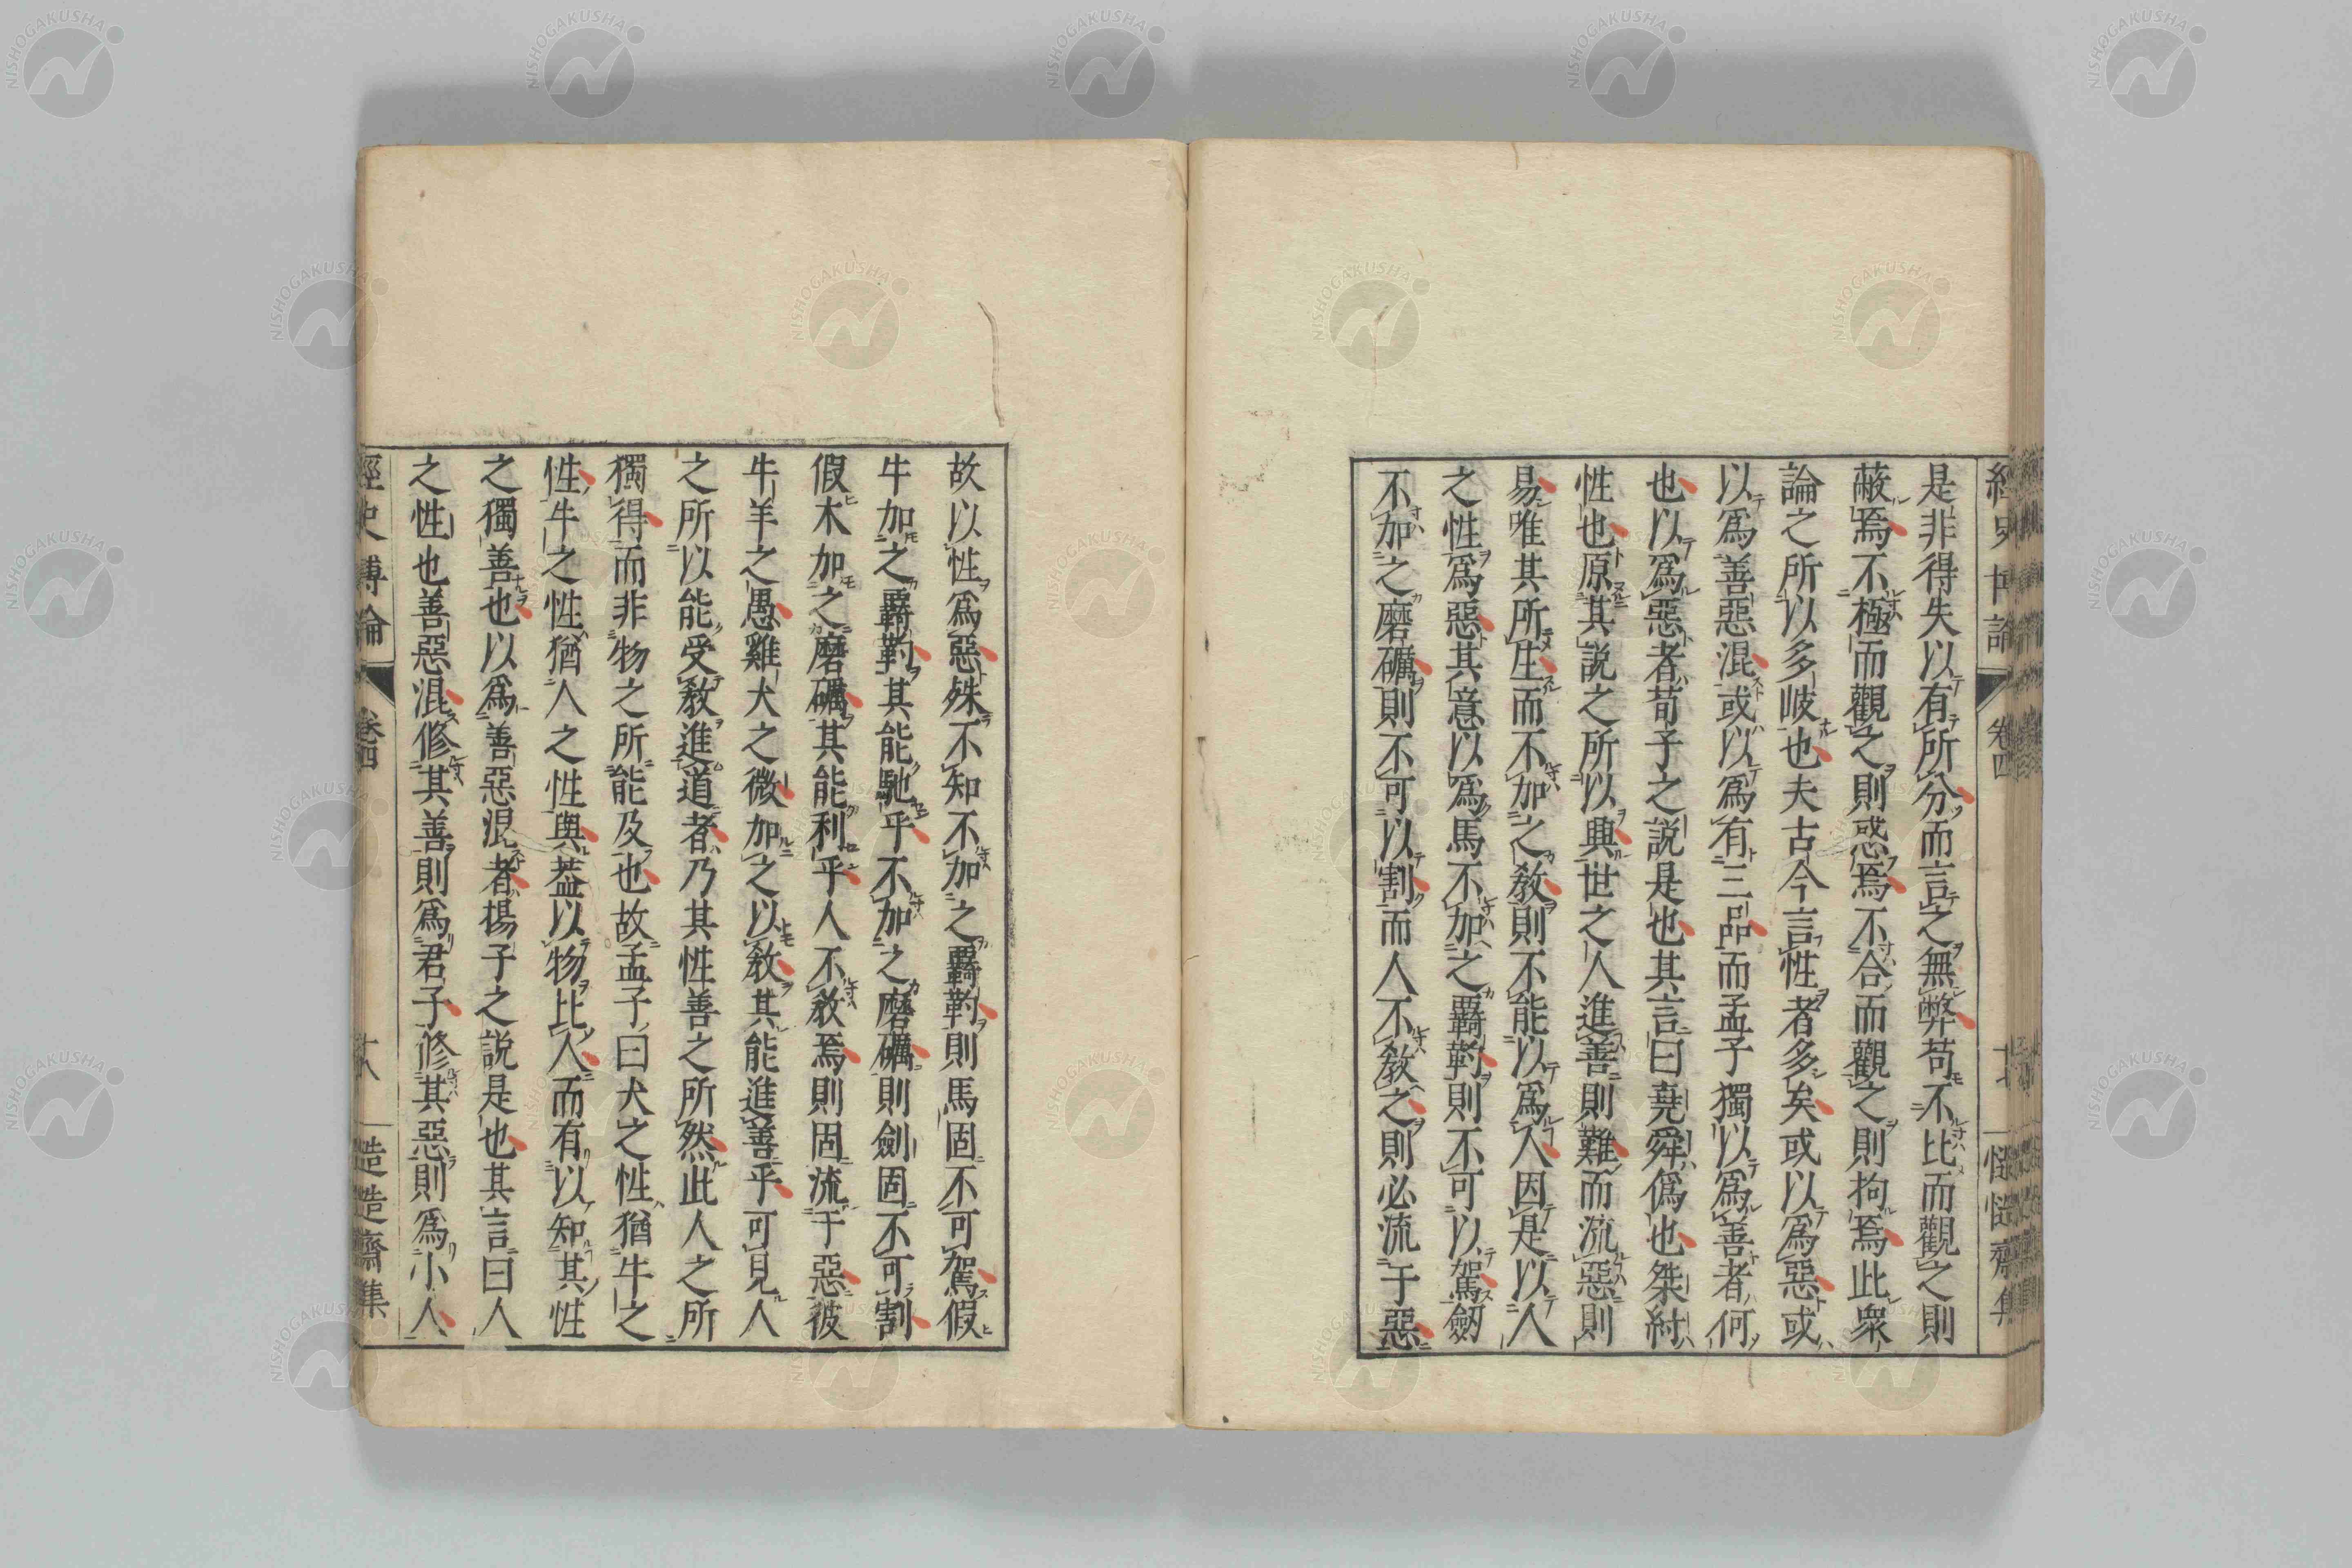 是非得失以有所分而言之無弊苟不比而觀之則
蔽焉不極而觀之則惑焉不合而觀之則拘焉此衆
論之所以多岐也夫古今言性者多矣或以爲惡或
以爲善惡混或以爲有三品而孟子獨以爲善者何
也以爲惡者荀子之説是也其言曰堯舜僞也桀紂
性也原其説之所以興世之人進善則難而流惡則
易唯其所生而不加之教則不能以爲人因是以人
之性爲惡其意以爲馬不加之羈靮則不可以駕劒
不加之磨礪則不可以割而人不教之則必流于惡
故以性爲惡殊不知不加之羈靮則馬固不可駕假
牛加之羈靮其能馳乎不加之磨礪則劍固不可割
假木加之磨礪其能利乎人不教焉則固流于惡彼
牛羊之愚雞犬之微加之以教其能進善乎可見人
之所以能受教進道者乃其性善之所然此人之所
獨得而非物之所能及也故孟子曰犬之性猶牛之
性牛之性猶人之性與蓋以物比人而有以知其性
之獨善也以爲善惡混者楊子之説是也其言曰人
之性也善惡混修其善則爲君子修其惡則爲小人
經史博論 卷四 十八 慥慥齋集